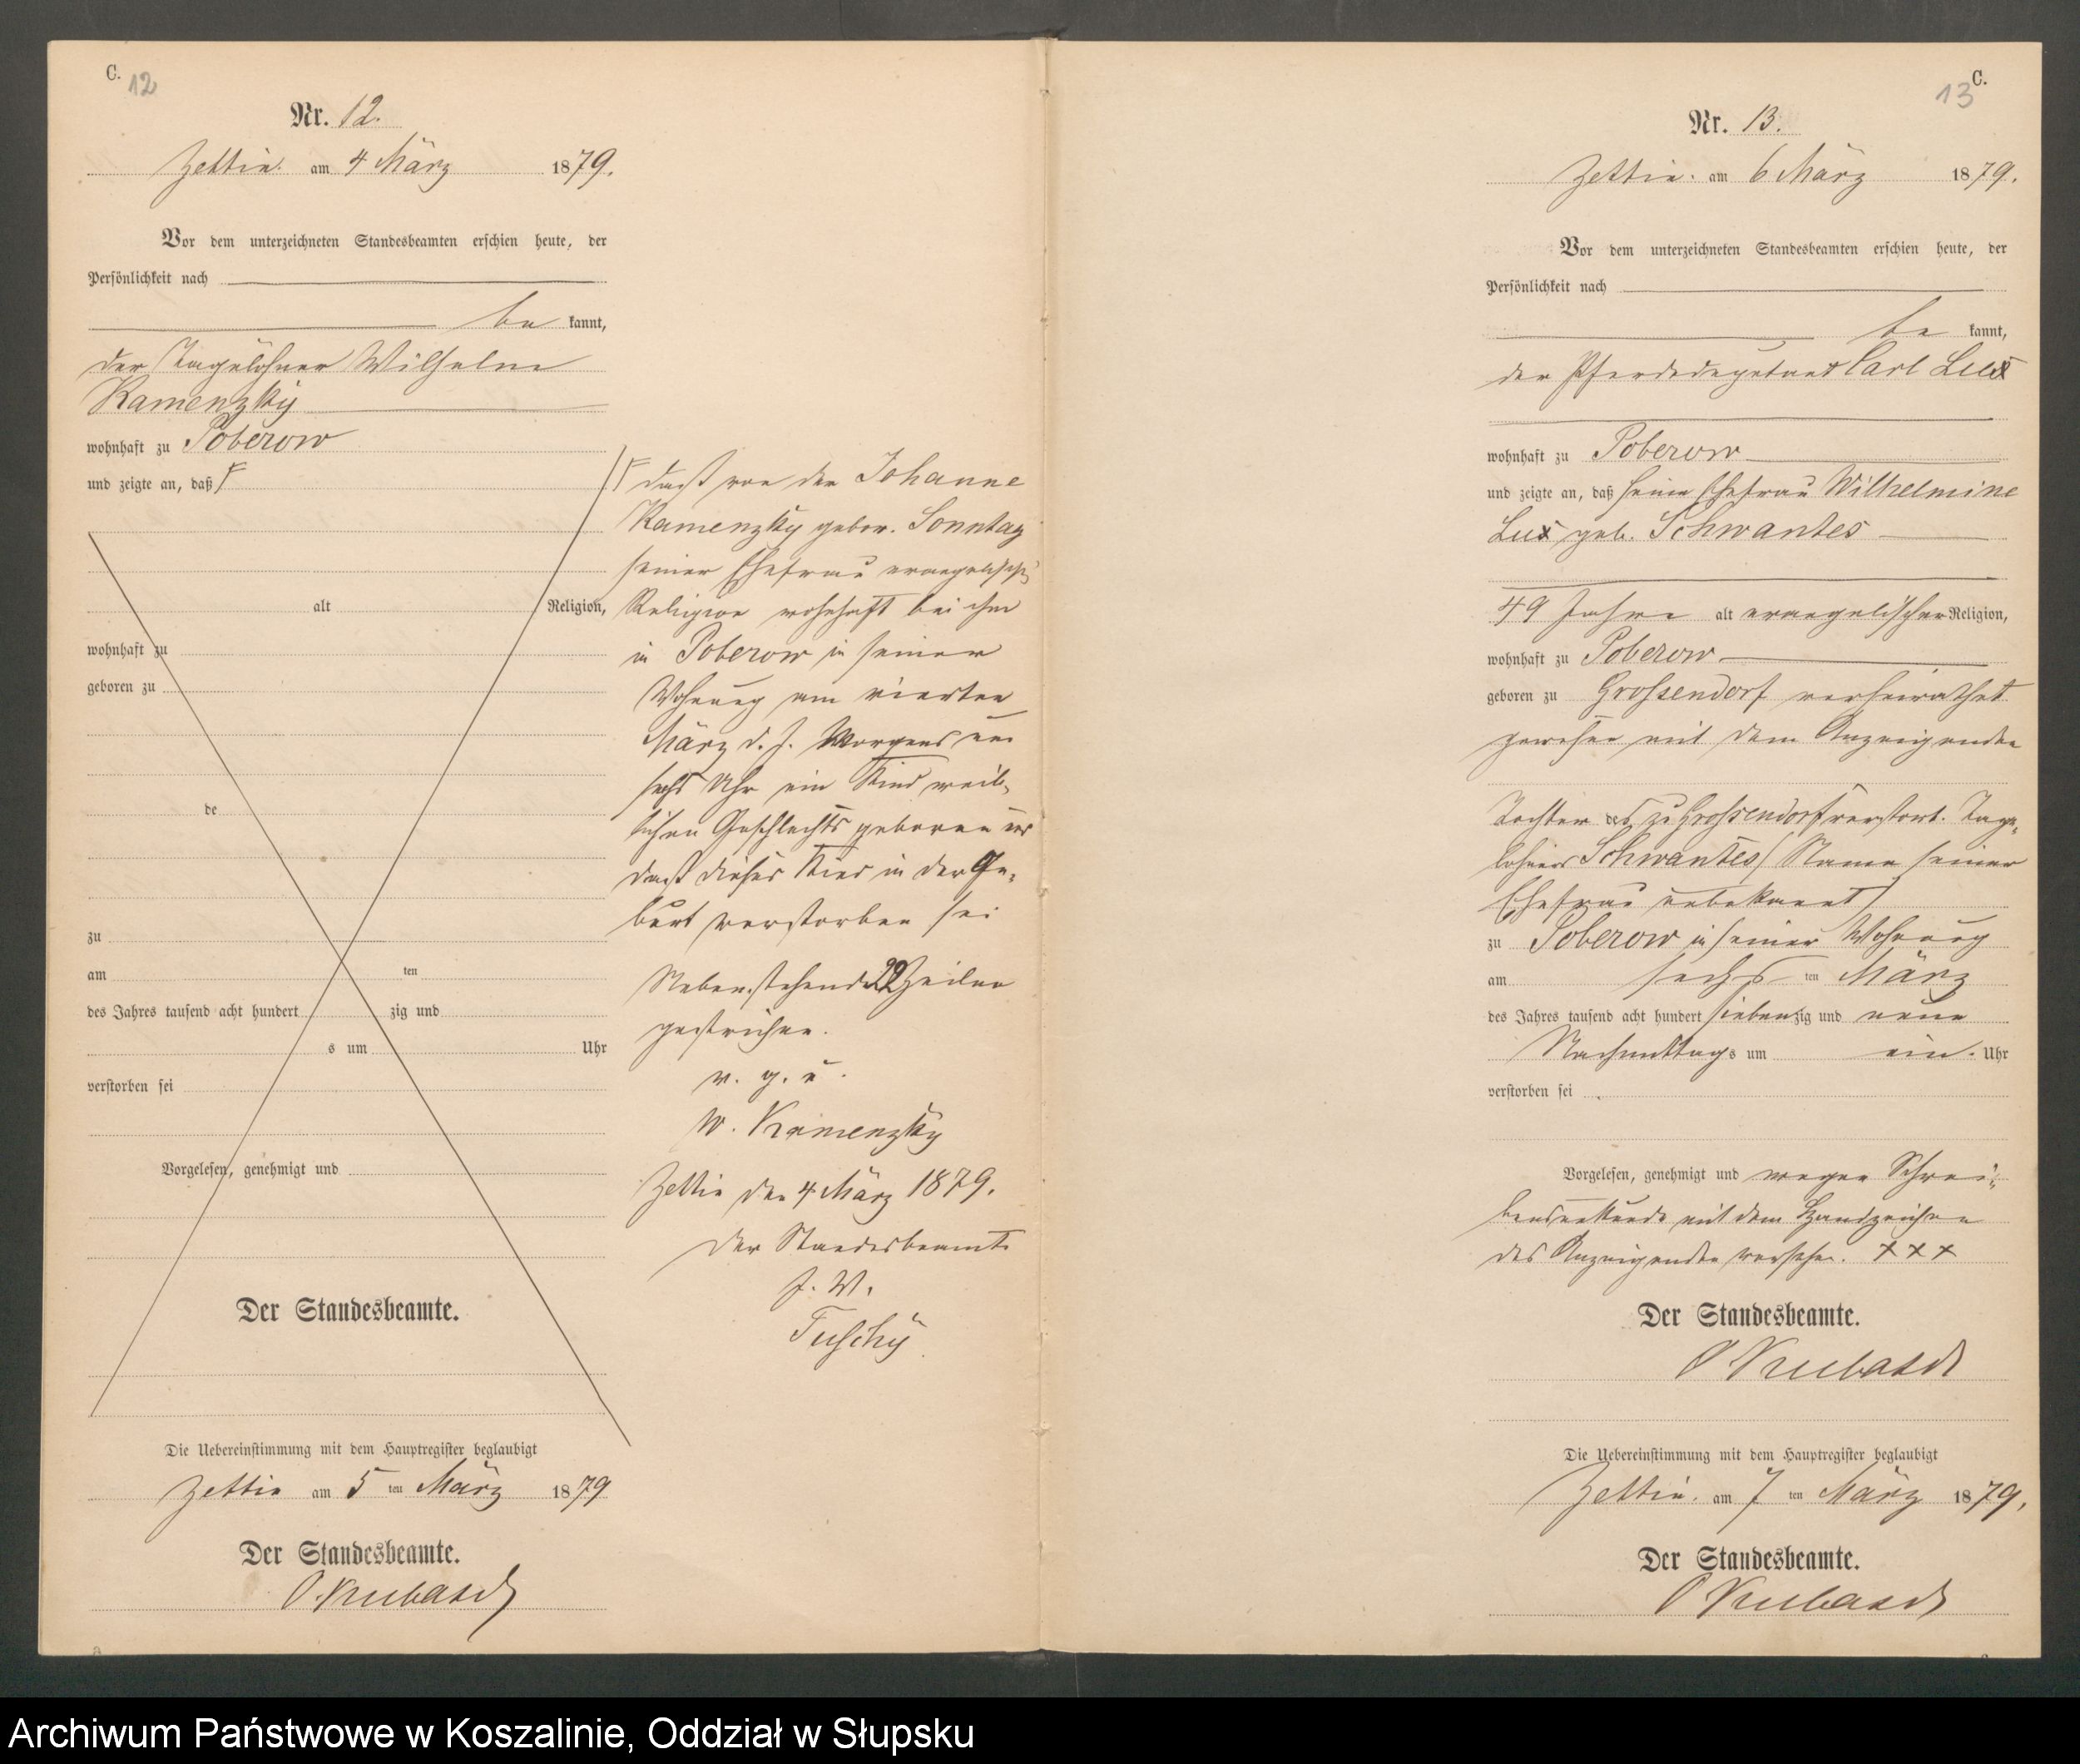 C.
12
Nr. 12.
Zettin. am 4 März 1879.
Vor dem unterzeichneten Standesbeamten erschien heute, der
Persönlichkeit nach
be kannt,
der Tagelöhner Wilhelm
Kamenzky
wohnhaft zu Poberow
und zeigte an, daß
alt Religion,
wohnhaft zu
geboren zu
de
zu
am ten
des Jahres tausend acht hundert zig und
s um Uhr
verstorben sei
Vorgelesen, genehmigt und
Der Standesbeamte.
Die Uebereinstimmung mit dem Hauptregister beglaubigt
Zettin am 5 ten März 1879
Der Standesbeamte.
daß von der Johanne
Kamenzky gebor. Sonntag
seiner Ehefrau evangelisch
Religion wohnhaft bei ihm
in Poberow in seiner
Wohnung am vierten
März d. J. Morgens um
sechs Uhr ein Kind weib-
lichen Geschlechts geboren und
daß dieses Kind in der Ge-
burt verstorben sei
Nebenstehende 22 Zeilen
gestrichen.
v. g. u.
W. Kamenzky
Zettin den 4 März 1879.
Der Standesbeamte
J. V.
Tuschy
C.
13
Nr. 13.
Zettin. am 6 März 1879.
Vor dem unterzeichneten Standesbeamten erschien heute, der
Persönlichkeit nach
be kannt,
der Carl Lux
wohnhaft zu Poberow
und zeigte an, daß seine Ehefrau Wilhelmine
Lux geb. Schwantes
49 Jahre alt evangelischer Religion,
wohnhaft zu Poberow
geboren zu Grossendorf verheirathet
gewesen mit dem Anzeigenden
Tochter des zu Grossendorf verstorb. Tage-
löhners Schwantes (Name seiner
Ehefrau unbekannt)
zu Poberow in seiner Wohnung
am sechs ten März
des Jahres tausend acht hundert siebenzig und neun
Nachmittags um ein Uhr
verstorben sei
Vorgelesen, genehmigt und wegen Schrei-
bensunkunde mit dem Handzeichen
des Anzeigenden versehen. + + +
Der Standesbeamte.
Die Uebereinstimmung mit dem Hauptregister beglaubigt
Zettin. am 7 ten März 1879.
Der Standesbeamte.
Archiwum Państwowe w Koszalinie, Oddział w Słupsku